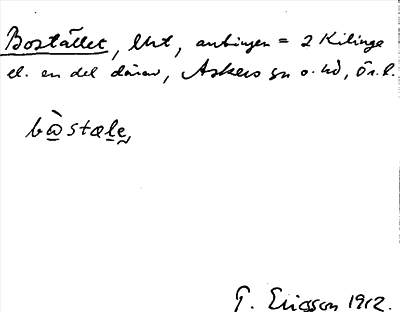 Bostället, lht, antingen = 2 Kilinge
el. en del därav, Askers sn o. hd, Ör. l.
bὼstæle̥
G. Ericsson 1912.